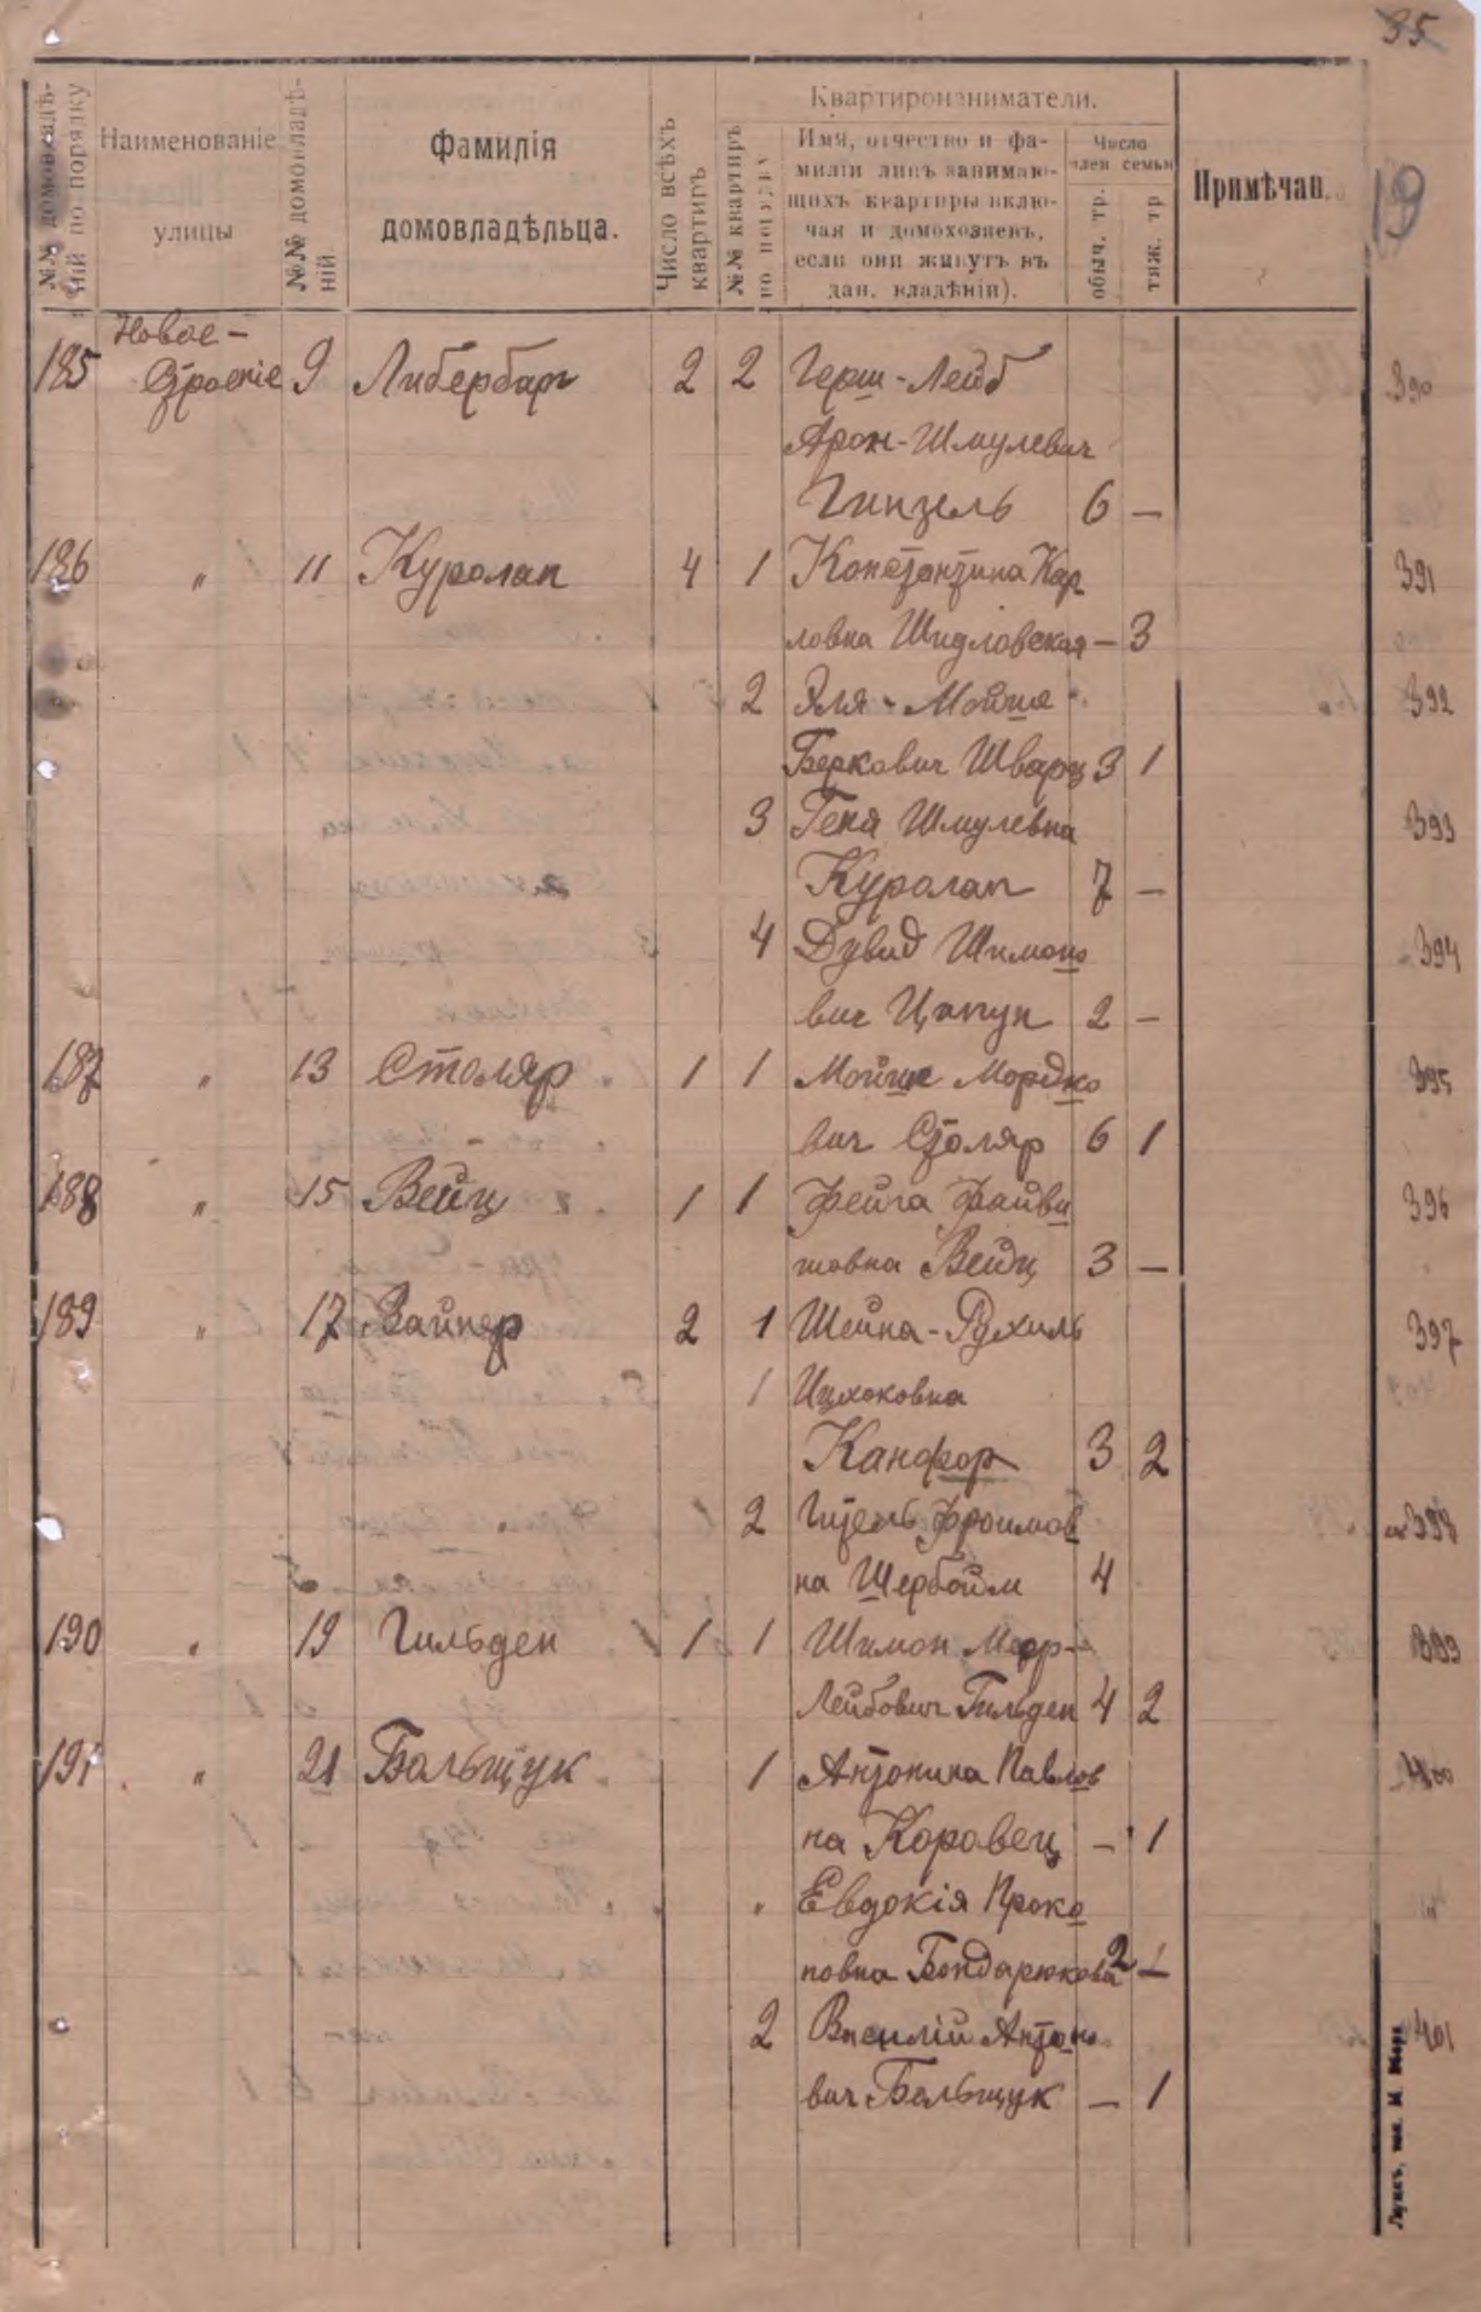 35
19
№№ домовладѣ-
ній по порядку
Наименованіе
улицы
№№ домовладѣ-
ній.
Фамилія
домовладѣльца.
Число всѣхъ
квартиръ
№№ квартиръ
Квартиронаниматели.
Имя, отчество и фа-
миліи лицъ занимаю-
щихъ квартиры вклю-
чая и домохозяевъ,
если они живутъ въ
дан. владѣніи).
Число
член семьи
обыч. тр.
тяж. тр
Примѣчан.
Новое-
185 Строеніе 9 Либербарг 2 2 Герш-Лейб 390
Арон-Шмулевич
Гинзель 6 —
186 " 11 Куролап 4 1 Константина Кар 391
ловна Шидловская — 3
2 Эля - Мойше 392
Беркович Шварц 3 1
3 Геня Шмулевна 393
Куролап 7 —
4 Дувид Шимоно 394
вич Цапун 2 —
187 " 13 Столяр 1 1 Мойше Мордко 395
вич Столяр 6 1
188 " 15 Вейц 1 1 Фейга Файви 396
шовна Вейц 3 —
189 " 17 Вайнер 2 1 Шейна-Рухиль 397
1 Ицхоковна
Канфор 3 2
2 Гитель Фроимов 398
на Шербойм 4
190 " 19 Гильден 1 1 Шимон 399
Лейбович Гильден 4 2
191 " 21 Бальщук 1 Антонина Павлов 400
на Коровец — 1
" Евдокія Проко
повна Бондарюкова 2
2 Василій Антоно 401
вич Бельщук — 1